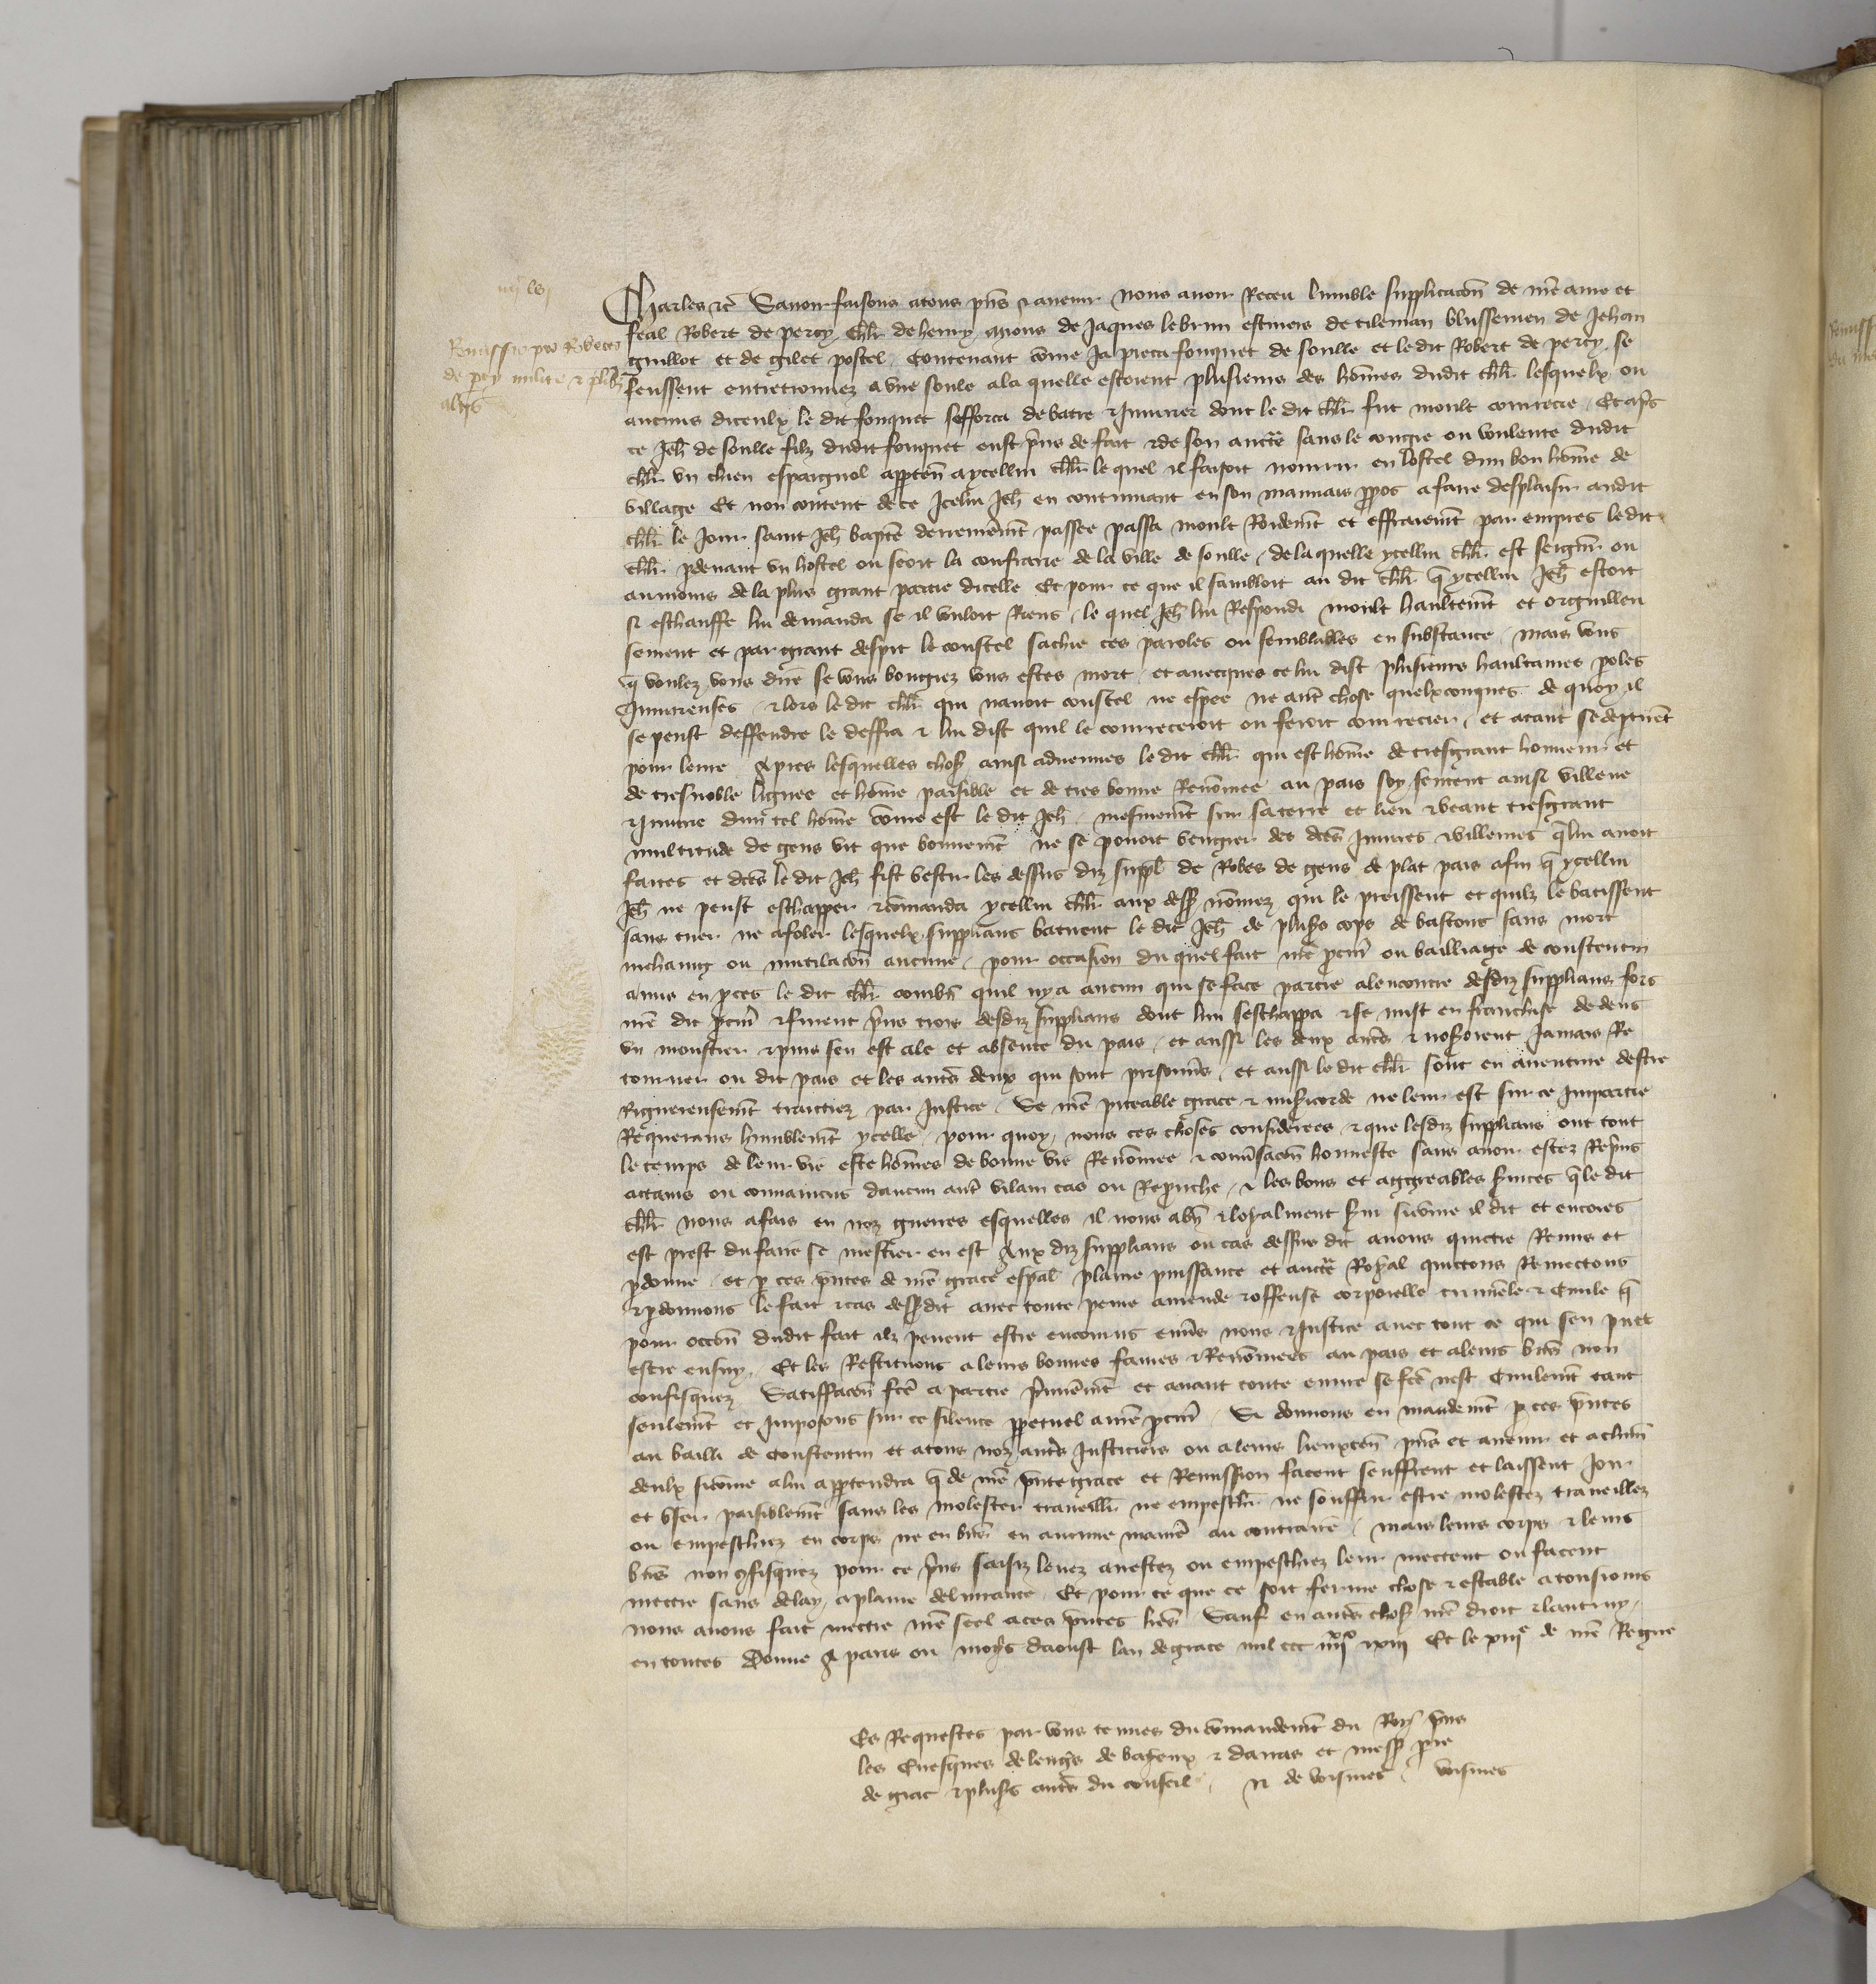 iiij lvj
Remissio pro Roberto
de p̱cy milite & plib3
alijs
Charles &c̃ Sauoir faisons atous p̃ns & auenir Nous auoir Receu lumble supplicacõn de nr̃e ame et
feal Robert de percy chl̃r de henry anons de Jaques lebrun escuiers de tileman blussemen de Jehan
guillot et de gilet postel / Contenant cõme Ja pieca fouquet de soulle et ledit Robert de percy se
feussent entretrouuez a vne soule ala quelle estoient plusieurs des hões dudit chl̃r lesquelx ou
aucuns diceulx le dit fouquet sefforca de batre & Iniurier dont le dit chl̃r fut moult courrece / Et ap̃s
ce Jeh̃ de soulle filz dudit fouquet eust p̃ns de fait & de son auctẽ sans le congie ou voulente dudit
chl̃r vn chien espaignol app̱ten̄ aycellui chl̃r le quel il faisoit nourrir en lostel dun bon hõme de
village Et non content de ce Icelui Jeh̃ en continuant en son mauuais p̱pos afaire desplaisir audit
chl̃r le Jour saint Jeh̃ bapt̃e derrenierem̃t passee passa moult Roidem̃t et effraieem̃t par empres ledit
chl̃r p̱deuant vn hostel ou seoit la confrarie de la ville de soulle / de la quelle ycellui chl̃r est seign̄r ou
aumoins de la plus grant partie dicelle Et pour ce que il sambloit au dit chl̃r q̃ ycellui Jeh̃ estoit
si eschauffe lui demanda se il vuloit Riens / le quel Jeh̃ lui Respondi moult haultem̃t et orguilleu
sement et par grant despit le coustel sachie ces paroles ou semblables en substance / mais vous
q̃ voulez vous dire se vous bougiez vous estes mort / et auecques ce lui dist plusieurs haultaines p̱oles
Iniurieuses / & lors le dit chl̃r qui nauoit coustel ne espee ne aut̃ chose quelxconques de quoy il
se peust deffendre le deffia & lui dist quil le courreceroit ou feroit courrecier / et atant se dep̱tirẽt
pour leure Apres lesquelles chos̃ ainsi aduenues le dit chl̃r qui est hõme de tresgrant honneur et
de tresnoble lignee et hõme paisible et de tres bonne Renõmee au pais soy sentent ainsi villene
& Iniurie dun tel hõme cõme est le dit Jeh̃ / mesmem̃t sur sa terre et lieu & veant tresgrant
multitude de gens vit que bonnem̃t ne se pouoit vengier des dcẽs Iniures & villenies q̃ lui auoit
faites et dcẽs le dit Jeh̃ fist vestir les dessus diz suppl̃ de Robes de gens de plat pais afin q̃ ycellui
Jeh̃ ne peust eschapper & cõmanda ycellui chl̃r aux dess̃ nõmez qui le preissent et quilz le batissent
sans tuer ne afoler lesquelx supplians batirent le dit Jeh̃ de plus̃s cops de bastons sans mort
mehaing ou mutilacõn aucune / pour occasion du quel fait nr̃e p̱cur̃ ou bailliage de coustentin
amis en p̱ces le dit chl̃r combn̄ quil ny a aucun qui se face partie alencontre desdiz supplians fors
nr̃e dit p̱cur̃ & furent p̃ns trois desdiz supplians dont lun seschappa & se mist en franchise dedens
vn moustier & puis sen est ale et absente du pais / et aussi les deux autẽs & noseroient Jamais Re
tourner ou dit pais et les autẽs deux qui sont prisonñs / et aussi le dit chl̃r sont en auenture destre
Rigoureusem̃t traictiez par Justice / Se nr̃e piteable grace & mis̃icorde ne leur est sur ce Impartie
Requerans humblem̃t ycelle / pour quoy / nous ces choses considerees & que lesdiz supplians ont tout
le temps de leur vie este hõmes de bonne vie Renõmee & conũsacõn honneste sans auoir estez Rep̃ns
actains ou conuaincus daucun aut̃ vilain cas ou Reprouche / & les bons et aggreables s̃uices q̃ le dit
chl̃r nous afais en noz guerres esquelles il nous abñ & loyalment s̃ui sicõme il dit et encores
est prest du faire se mestier en est Aux diz supplians ou cas dessus dit auons quictie Remis et
p̱donne / et p̱ ces p̃ntes de nr̃e grace esp̃al plaine puissance et auctẽ Royal quictons Remectons
& p̱donnons le fait & cas dess̃dit auec toute peine amende & offense corporelle crimiñele & Ciuile q̃
pour occõn dudit fait ilz peuent estre encourus enũs nous & Justice auec tout ce qui sen puet
estre ensuy / Et les Restituons a leurs bonnes fames & Renõmees au pais et aleurs bñs non
confisquez Satiffacõn fcẽ a partie p̃mierem̃t et auant toute euure se fcẽ nest Ciuilem̃t tant
seulem̃t et Imposons sur ce silence p̱petuel anr̃e p̱cur̃ / Si donnons en mandem̃t p̱ ces p̃ntes
au bailli de Coustentin et atous noz autẽs Justiciers ou aleurs lieuxten̄ p̃ns et auenir et achũn
deulx sicõme alui app̱tendra q̃ de nr̃e p̃nte grace et Remission facent seuffrent et laissent Joir
et vser paisiblem̃t sans les molester trauaill̃r ne empesch̃r ne souffrir estre molestez trauaillez
ou empeschiez en corps ne en bñs en aucune manẽ au contraire / mais leurs corps & leurs
bñs non ꝯfisquez pour ce p̃ns saisiz leuez arrestez ou empeschiez leur mectent ou facent
mectre sans delay aplaine deliurance Et pour ce que ce soit ferme chose & estable atousiours
nous auons fait mectre nr̃e scel aces p̃ntes lr̃es Sauf en autẽs chos̃ nr̃e droit & lautruy
en toutes Donne A paris ou moys daoust lan de grace mil ccc iiijxx xiij Et le xiije de nr̃e Regne
Es Requestes par vous tenues du cõmandem̃t du Roy p̃ns
les Euesques de leng̃s de bayeux & darras et mess̃ p̱re
de giac & plus̃s autẽs du conseil / N de voisines / voisines